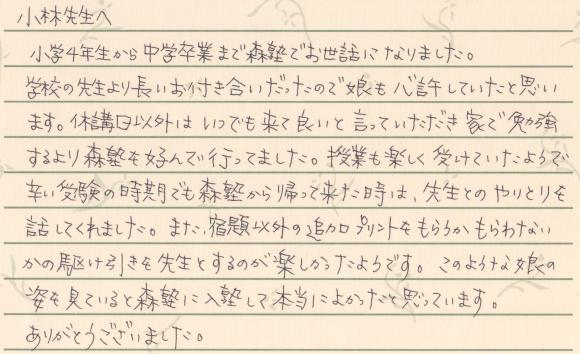 小林先生へ
小学4年生から中学卒業まで森塾でお世話になりました。
学校の先生より長いお付き合いだったので娘も心許していたと思い
ます。休講日以外はいつでも来て良いと言っていただき家で勉強
するより森塾を好んで行ってました。授業も楽しく受けていたようで
辛い受験の時期でも森塾から帰って来た時は、先生とのやりとりを
話してくれました。また、宿題以外の追加プリントをもらうかもらわない
かの駆け引きを先生とするのが楽しかったようです。このような娘の
姿を見ていると森塾に入塾して本当によかったと思っています。
ありがとうございました。